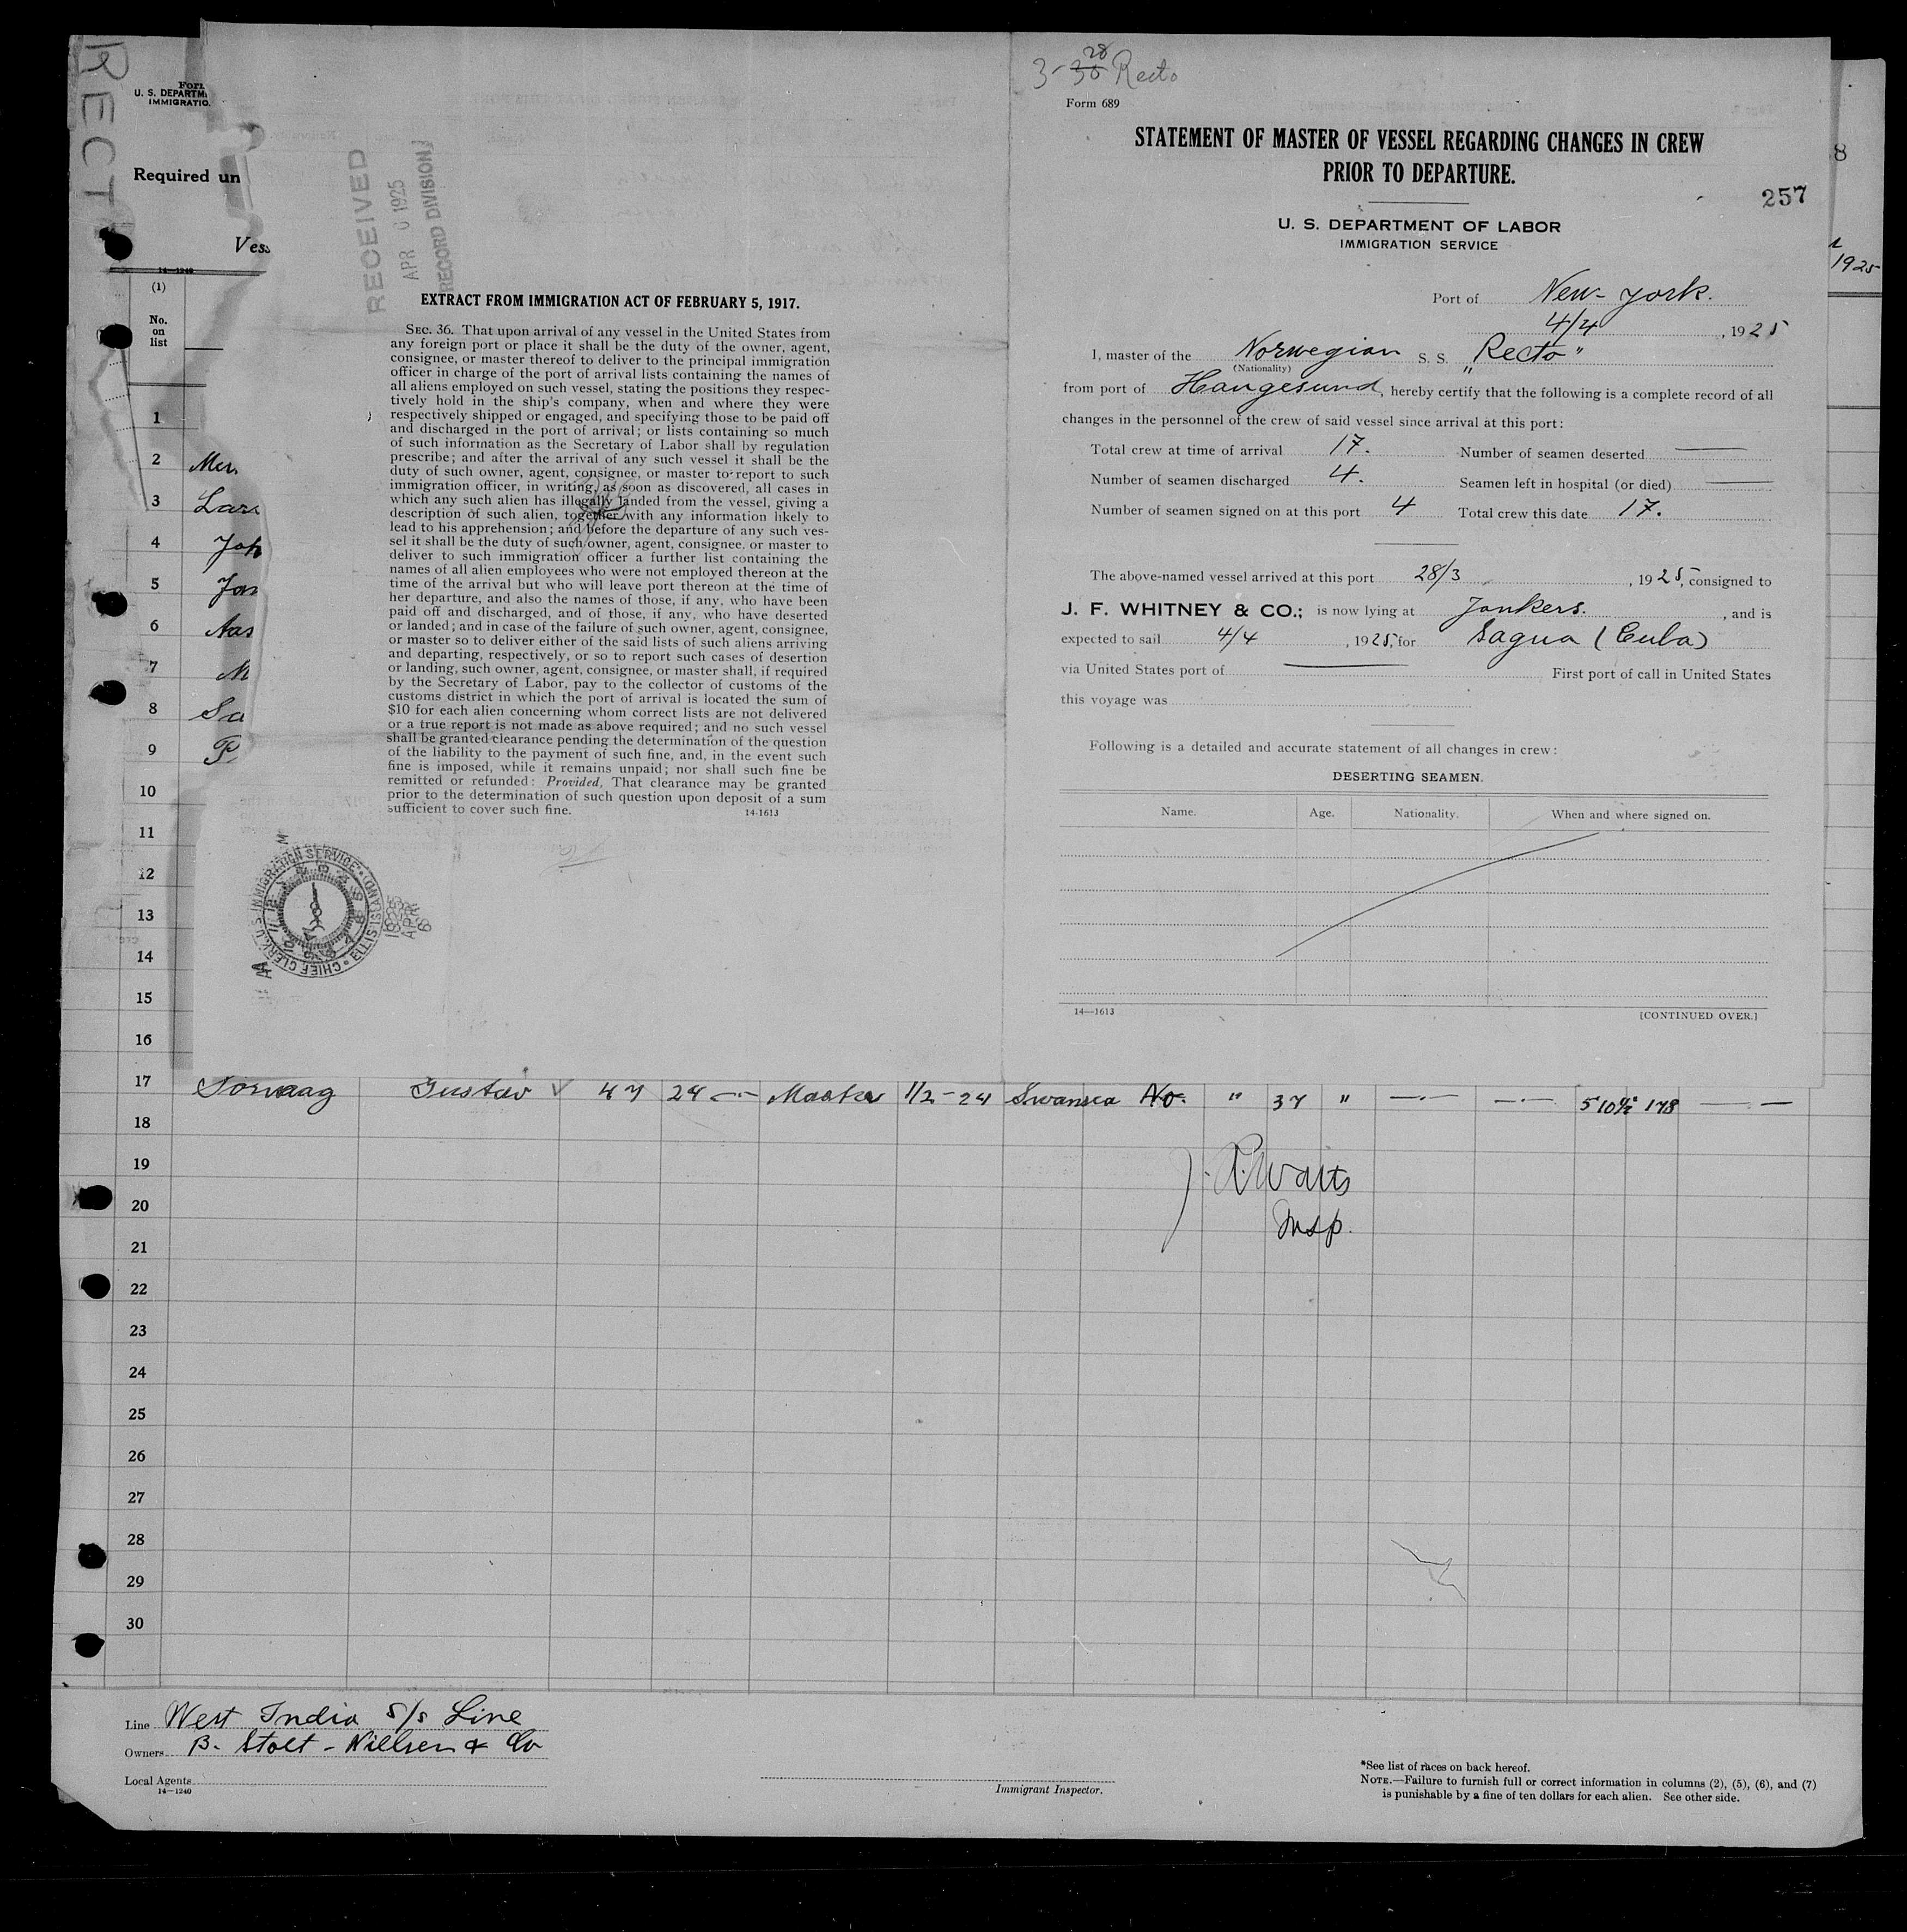 RECT
Form
U. S. DEPARTM
IMMIGRATIO
Required un
Vess
14—1240
(1)
No.
on
list
1
2 Mer
3 Lars
4 Joh
5 Jon
6 Aas
7 M
8 Sa
9 P
10
11
12
13
14
15
16
RECEIVED
APR 1925
RECORD DIVISION
EXTRACT FROM IMMIGRATION ACT OF FEBRUARY 5, 1917.
SEC. 36. That upon arrival of any vessel in the United States from
any foreign port or place it shall be the duty of the owner, agent,
consignee, or master thereof to deliver to the principal immigration
officer in charge of the port of arrival lists containing the names of
all aliens employed on such vessel, stating the positions they respec-
tively hold in the ship's company, when and where they were
respectively shipped or engaged, and specifying those to be paid off
and discharged in the port of arrival; or lists containing so much
of such information as the Secretary of Labor shall by regulation
prescribe; and after the arrival of any such vessel it shall be the
duty of such owner, agent, consignee, or master to report to such
immigration officer, in writing, as soon as discovered, all cases in
which any such alien has illegally landed from the vessel, giving a
description of such alien, together with any information likely to
lead to his apprehension; and before the departure of any such ves-
sel it shall be the duty of such owner, agent, consignee, or master to
deliver to such immigration officer a further list containing the
names of all alien employees who were not employed thereon at the
time of the arrival but who will leave port thereon at the time of
her departure, and also the names of those, if any, who have been
paid off and discharged, and of those, if any, who have deserted
or landed; and in case of the failure of such owner, agent, consignee,
or master so to deliver either of the said lists of such aliens arriving
and departing, respectively, or so to report such cases of desertion
or landing, such owner, agent, consignee, or master shall, if required
by the Secretary of Labor, pay to the collector of customs of the
customs district in which the port of arrival is located the sum of
$10 for each alien concerning whom correct lists are not delivered
or a true report is not made as above required; and no such vessel
shall be granted clearance pending the determination of the question
of the liability to the payment of such fine, and, in the event such
fine is imposed, while it remains unpaid; nor shall such fine be
remitted or refunded: Provided, That clearance may be granted
prior to the determination of such question upon deposit of a sum
sufficient to cover such fine.
14-1613
CHIEF CLERK U.S. IMMIGRATION SERVICE ELLIS ISLAND
1925
APR
6
3-30 28 Recto
Form 689
STATEMENT OF MASTER OF VESSEL REGARDING CHANGES IN CREW
PRIOR TO DEPARTURE.
257
U. S. DEPARTMENT OF LABOR
IMMIGRATION SERVICE
Port of New-York.
4/4, 1925
I, master of the Norwegian S. S. "Recto"
(Nationality)
from port of Haugesund, hereby certify that the following is a complete record of all
changes in the personnel of the crew of said vessel since arrival at this port:
Total crew at time of arrival 17. Number of seamen deserted —
Number of seamen discharged 4. Seamen left in hospital (or died) —
Number of seamen signed on at this port 4 Total crew this date 17.
The above-named vessel arrived at this port 28/3, 1925, consigned to
J. F. WHITNEY & CO.; is now lying at Jonkers., and is
expected to sail 4/4, 1925, for Sagua (Cuba)
via United States port of — First port of call in United States
this voyage was
Following is a detailed and accurate statement of all changes in crew:
DESERTING SEAMEN.
Name. Age. Nationality. When and where signed on.
14—1613
[CONTINUED OVER.]
8
1925
17 Sorvaag Gustav 47 24 —·— Master 1/2-24 Swansea No. " 37 " —·— —·— 5 10½" 178 — —
J. R. Watts
Insp.
18
19
20
21
22
23
24
25
26
27
28
29
30
Line West India S/S Line
Owners B. Stolt-Nielsen & Co
Local Agents
14—1240
Immigrant Inspector.
*See list of races on back hereof.
NOTE.—Failure to furnish full or correct information in columns (2), (5), (6), and (7)
is punishable by a fine of ten dollars for each alien. See other side.